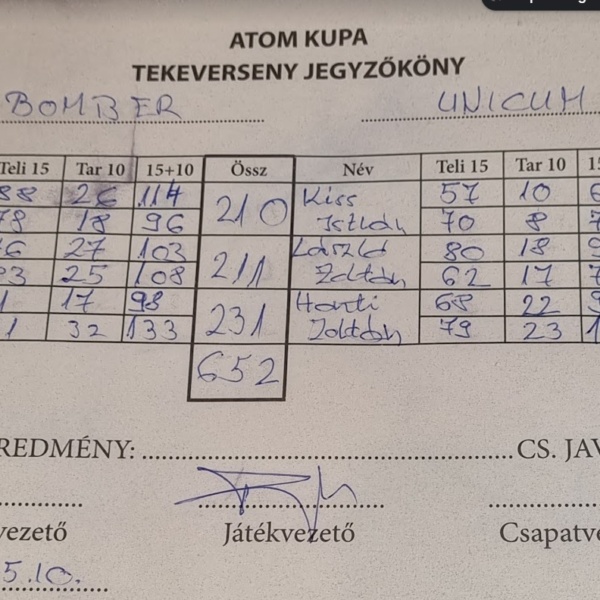 ATOM KUPA
TEKEVERSENY JEGYZŐKÖNY
BOMBER UNICUM
Teli 15 Tar 10 15+10 Össz Név Teli 15 Tar 10
88 26 114 210 Kiss 57 10
78 18 96 István 70 8
27 103 211 László 80 18
25 108 Zoltán 62 17
17 98 231 Honti 68 22
32 133 Zoltán 79 23
652
REDMÉNY: CS. JAV
vezető Játékvezető Csapatve
5.10.